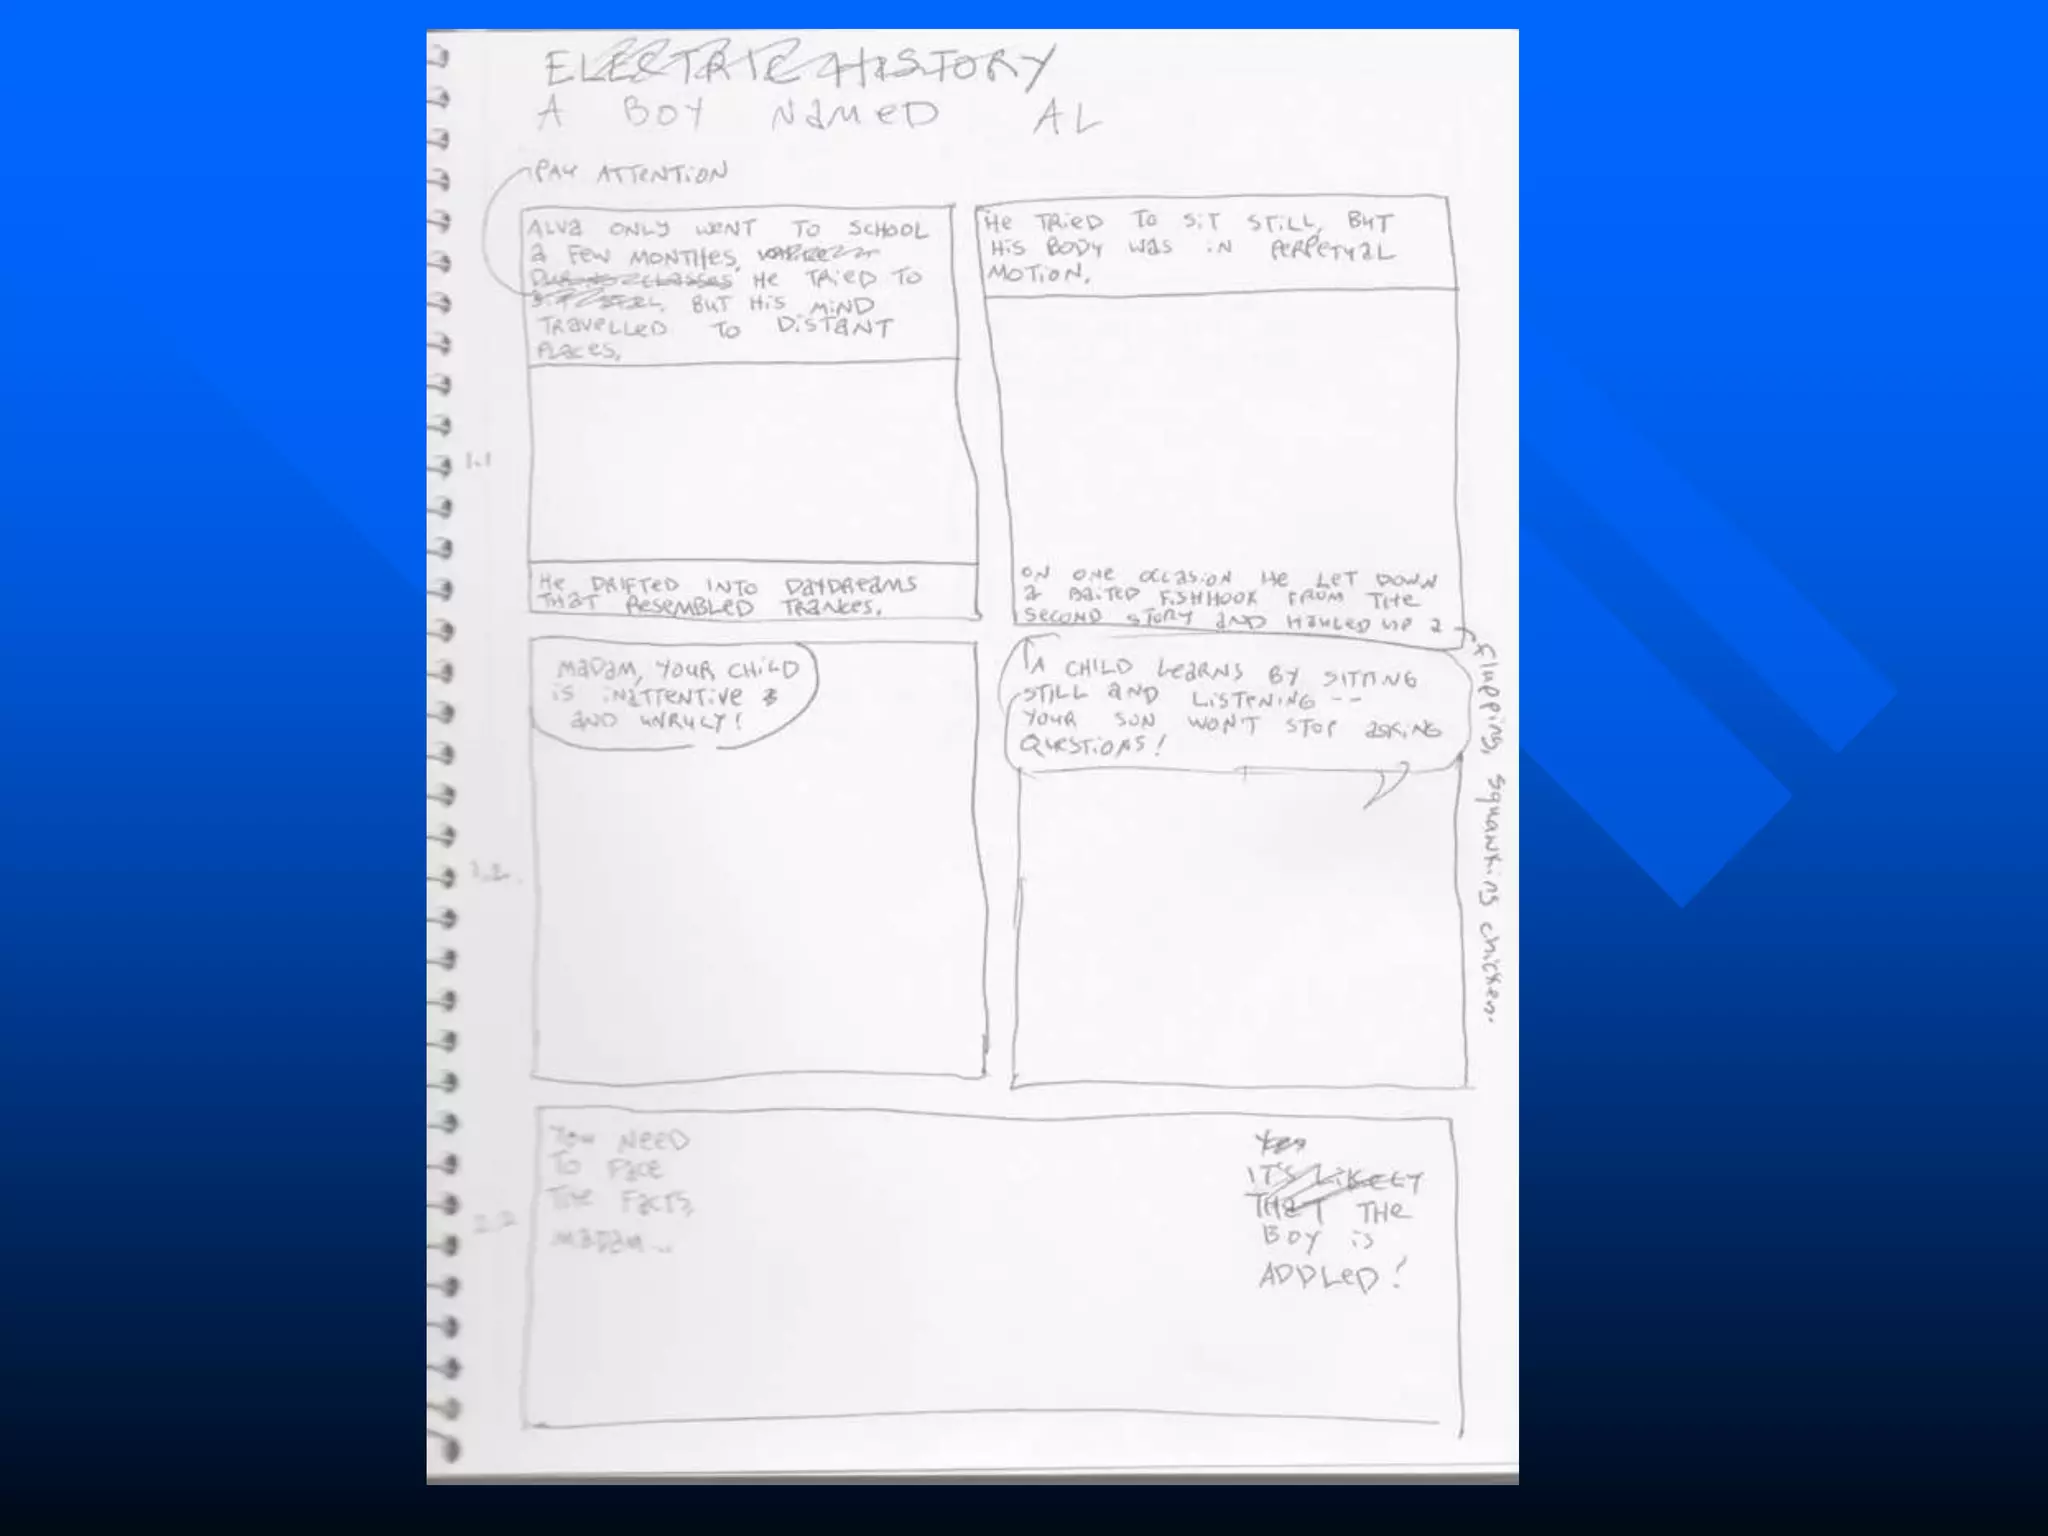 ELECTRIC HISTORY
A BOY NAMED AL
PAY ATTENTION
ALVA ONLY WENT TO SCHOOL
A FEW MONTHES,
DURING CLASSES HE TRIED TO
SIT STILL, BUT HIS MIND
TRAVELLED TO DISTANT
PLACES.
HE DRIFTED INTO DAYDREAMS
THAT RESEMBLED TRANCES.
HE TRIED TO SIT STILL, BUT
HIS BODY WAS IN PERPETUAL
MOTION.
ON ONE OCCASION HE LET DOWN
A BAITED FISHHOOK FROM THE
SECOND STORY AND HAULED UP A
flapping, squawking chicken.
1.1
MADAM, YOUR CHILD
IS INATTENTIVE
AND UNRULY!
A CHILD LEARNS BY SITTING
STILL AND LISTENING --
YOUR SON WON'T STOP ASKING
QUESTIONS!
1.2.
YOU NEED
TO FACE
THE FACTS,
MADAM...
YES
IT'S LIKELY
THAT THE
BOY IS
ADDLED!